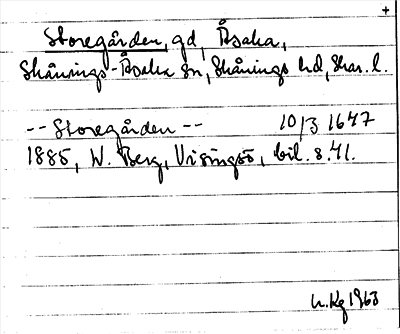 +
Storegården, gd, Åsaka,
Skånings-Åsaka sn, Skånings hd, Skar. l.
-- Storegården -- 10/3 1647
1885, W. Berg, Visingsö, bil. s. 41.
1963